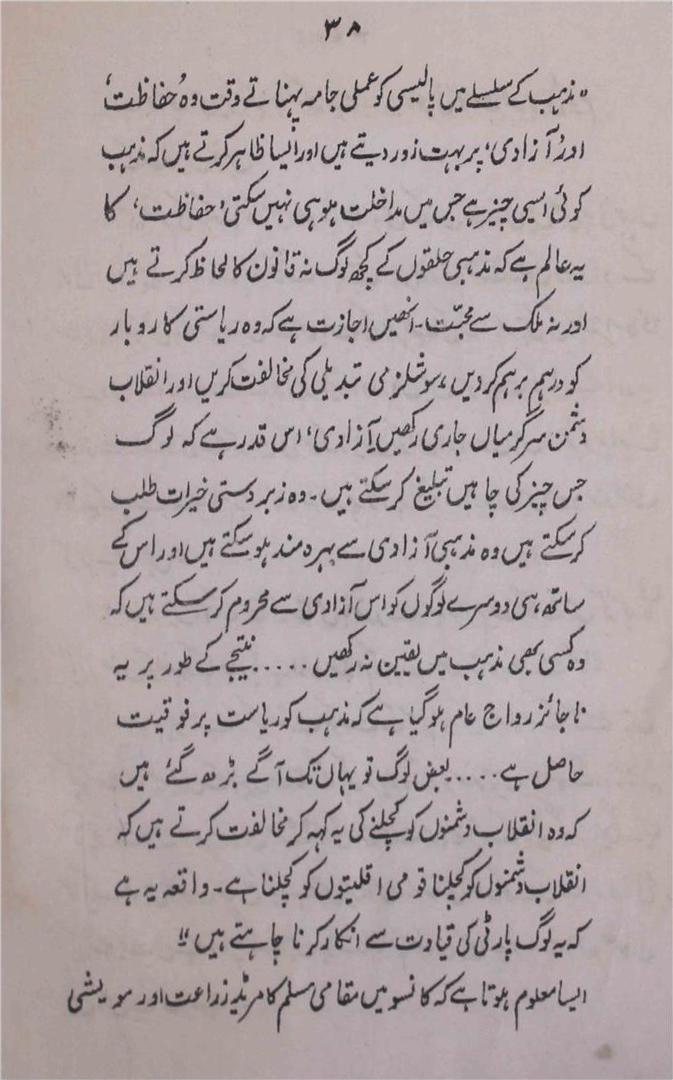 ۳۸
"مذہب کے سلسلے میں پالیسی کو عملی جامہ پہناتے وقت وہ 'حفاظت'
اور 'آزادی' پر بہت زور دیتے ہیں اور ایسا ظاہر کرتے ہیں کہ مذہب
کوئی ایسی چیز ہے جس میں مداخلت ہو ہی نہیں سکتی 'حفاظت' کا
یہ عالم ہے کہ مذہبی حلقوں کے کچھ لوگ نہ قانون کا لحاظ کرتے ہیں
اور نہ ملک سے محبّت۔ انھیں اجازت ہے کہ وہ ریاستی کاروبار
کو درہم برہم کر دیں، سوشلزمی تبدیلی کی مخالفت کریں اور انقلاب
دشمن سرگرمیاں جاری رکھیں 'آزادی' اس قدر ہے کہ لوگ
جس چیز کی چاہیں تبلیغ کر سکتے ہیں۔ وہ زبردستی خیرات طلب
کر سکتے ہیں وہ مذہبی آزادی سے بہرہ مند ہو سکتے ہیں اور اس کے
ساتھ ہی دوسرے لوگوں کو اس آزادی سے محروم کر سکتے ہیں کہ
وہ کسی بھی مذہب میں یقین نہ رکھیں ..... نتیجے کے طور پر یہ
ناجائز رواج عام ہو گیا ہے کہ مذہب کو ریاست پر فوقیت
حاصل ہے .... بعض لوگ تو یہاں تک آگے بڑھ گئے ہیں
کہ وہ انقلاب دشمنوں کو کچلنے کی یہ کہہ کر مخالفت کرتے ہیں کہ
انقلاب دشمنوں کو کچلنا قومی اقلیتوں کو کچلنا ہے۔ واقعہ یہ ہے
کہ یہ لوگ پارٹی کی قیادت سے انکار کرنا چاہتے ہیں"
ایسا معلوم ہوتا ہے کہ کانسو میں مقامی مسلم کامریڈ زراعت اور مویشی